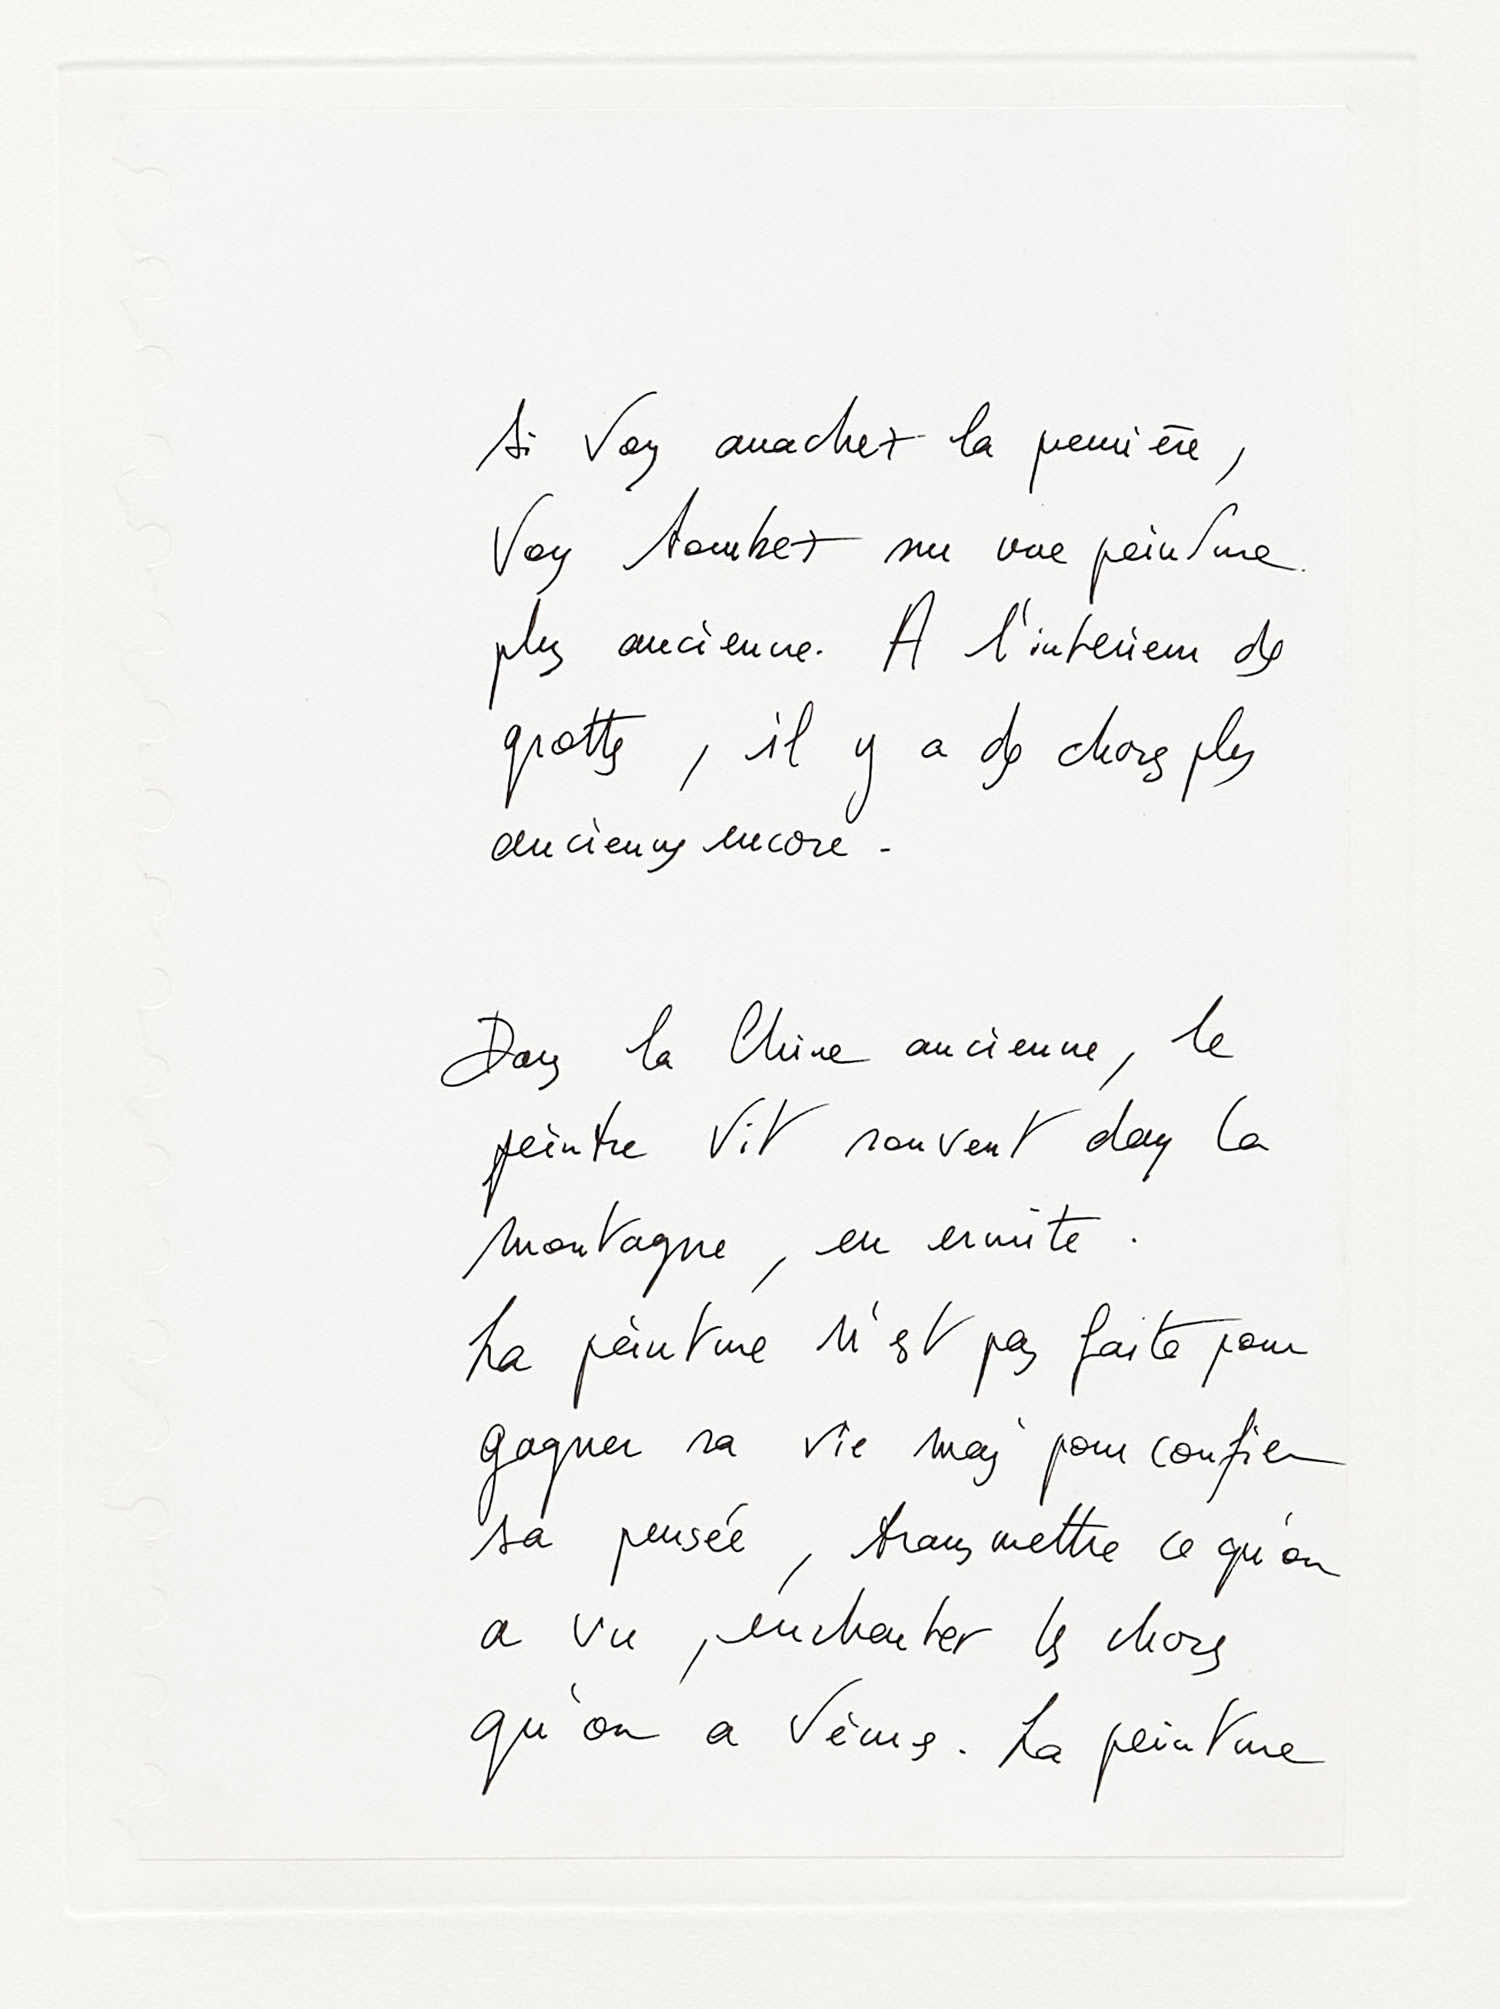 Si vous arrachez la première,
vous tombez sur une peinture
plus ancienne. A l'intérieur des
grottes, il y a des choses plus
anciennes encore.
Dans la Chine ancienne, le
peintre vit souvent dans la
montagne, en ermite.
La peinture n'est pas faite pour
gagner sa vie mais pour confier
sa pensée, transmettre ce qu'on
a vu, enchanter les choses
qu'on a vécues. La peinture